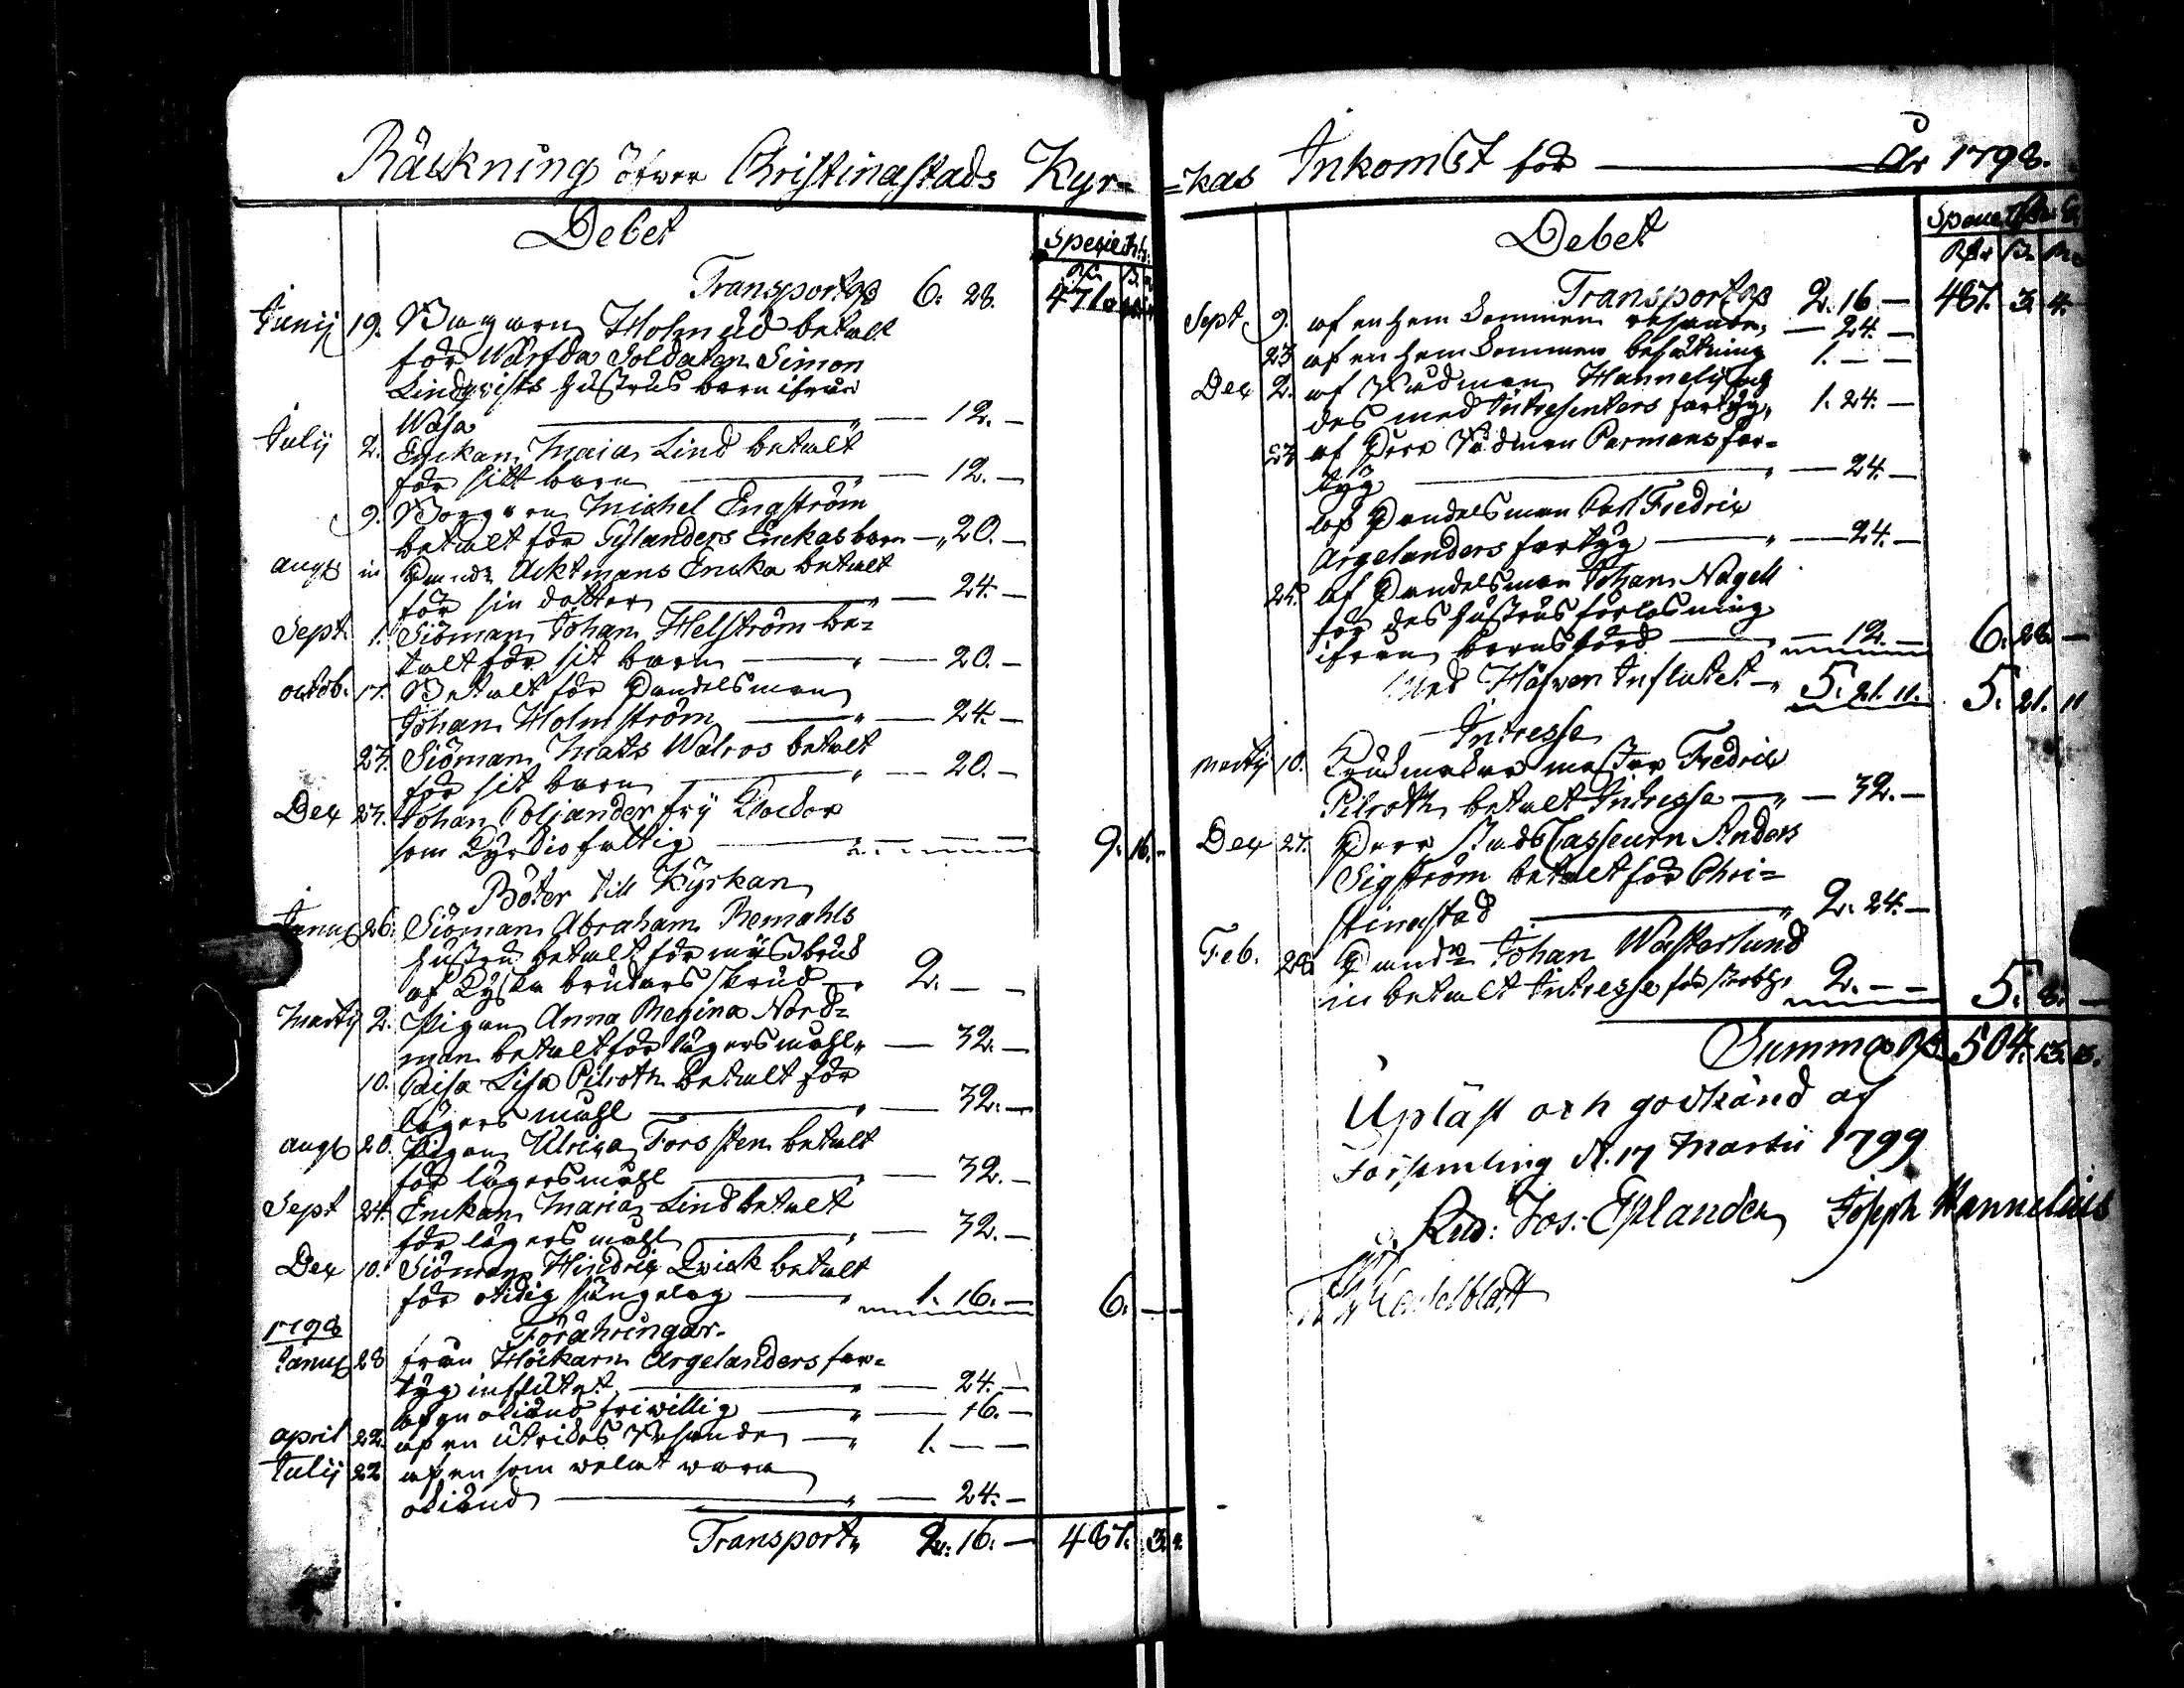 Räckning öfver Christinæstads Kyr=
Debet
Specie
Transport 6. 28. 471.
Junij 19. Borgaren Holm betalt
för Wärfda Soldaten Simon
Lindqvists hustrus barn ifrån
Wasa — 12. —
Julij 2. Enckan Maria Lind betalt
för sitt barn — 12. —
9. Borgaren Michel Engström
betalt för Gylanders Enckas barn — 20. —
Aug Ackmans Encka betalt
för sin dotter — 24. —
Sept. 1. Siöman Johan Helström be=
talt för sit barn — 20. —
octob. 17. Betalt för Handelsman
Johan Holmström — 24. —
27. Siöman Mats Walros betalt
för sit barn — 20. —
Dec 27. Johan Poljander fri Klockor
som Kyrkiofattig — 9. 16. —
Böter till Kyrkan
Janua 26. Siöman Abraham Remahls
hustru betalt för missbruk
af Kyska brudars skrud 2. — —
Marty 2. Pigan Anna Regina Nord=
man betalt för lägersmahl — 32. —
10. Caisa Lisa Pilroth betalt för
lägersmahl — 32. —
Aug 20. Pigan Ulrica Forssten betalt
för lägersmahl — 32. —
Sept 24. Enckan Maria Lind betalt
för lägersmahl — 32. —
Dec 10. Siöman Hindric Qvick betalt
för otidig sängelag — 1. 16. — 6. — —
1798 Förähringar
Janua 28 från Höckarn Argelanders far=
tyg influtet — 24. —
af en okiänd friwillig — 16. —
April 22. af en utrikes Resande — 1. — —
Julij 22 af en som velat vara
okiänd — 24. —
Transport 2. 16. — 487. 3. 4.
=kas Inkomst för — År 1798.
Debet
Specie
Rdr
Transport 2. 16 — 487. 3. 4.
Sept 9. af en hemkommen resande — 24. —
23 af en hemkommen besättning 1. — —
Dec 2. af Rådman Hannelij och
des med Intresenters fartyg 1. 24. —
23 af Herr Rådman Parmans far=
tyg — 24. —
af Handelsman Carl Fredric
Argelanders fartyg — 24. —
25. af Handelsman Johan Nagell
för des hustrus förlosning
ifrån barnsbörd — 12. — 6. 28. —
Med Håfven Influtet 5. 21. 11. 5. 21. 11
Intresse
Marty 10. Krukmakar mäster Fredric
Pilroth betalt Intresse — 32. —
Dec 27. Herr Stads Casseurn Anders
Sigström betalt för Chri=
stinæstad 2. 24. —
Feb. 28 Johan Wästerlund
betalt Intresse för 2. — — 5. 8. —
Summa 504. 13.
Upläst och godkänd af
Församling d. 17 Martii 1799
Jos: Eplander Joseph Hannelius